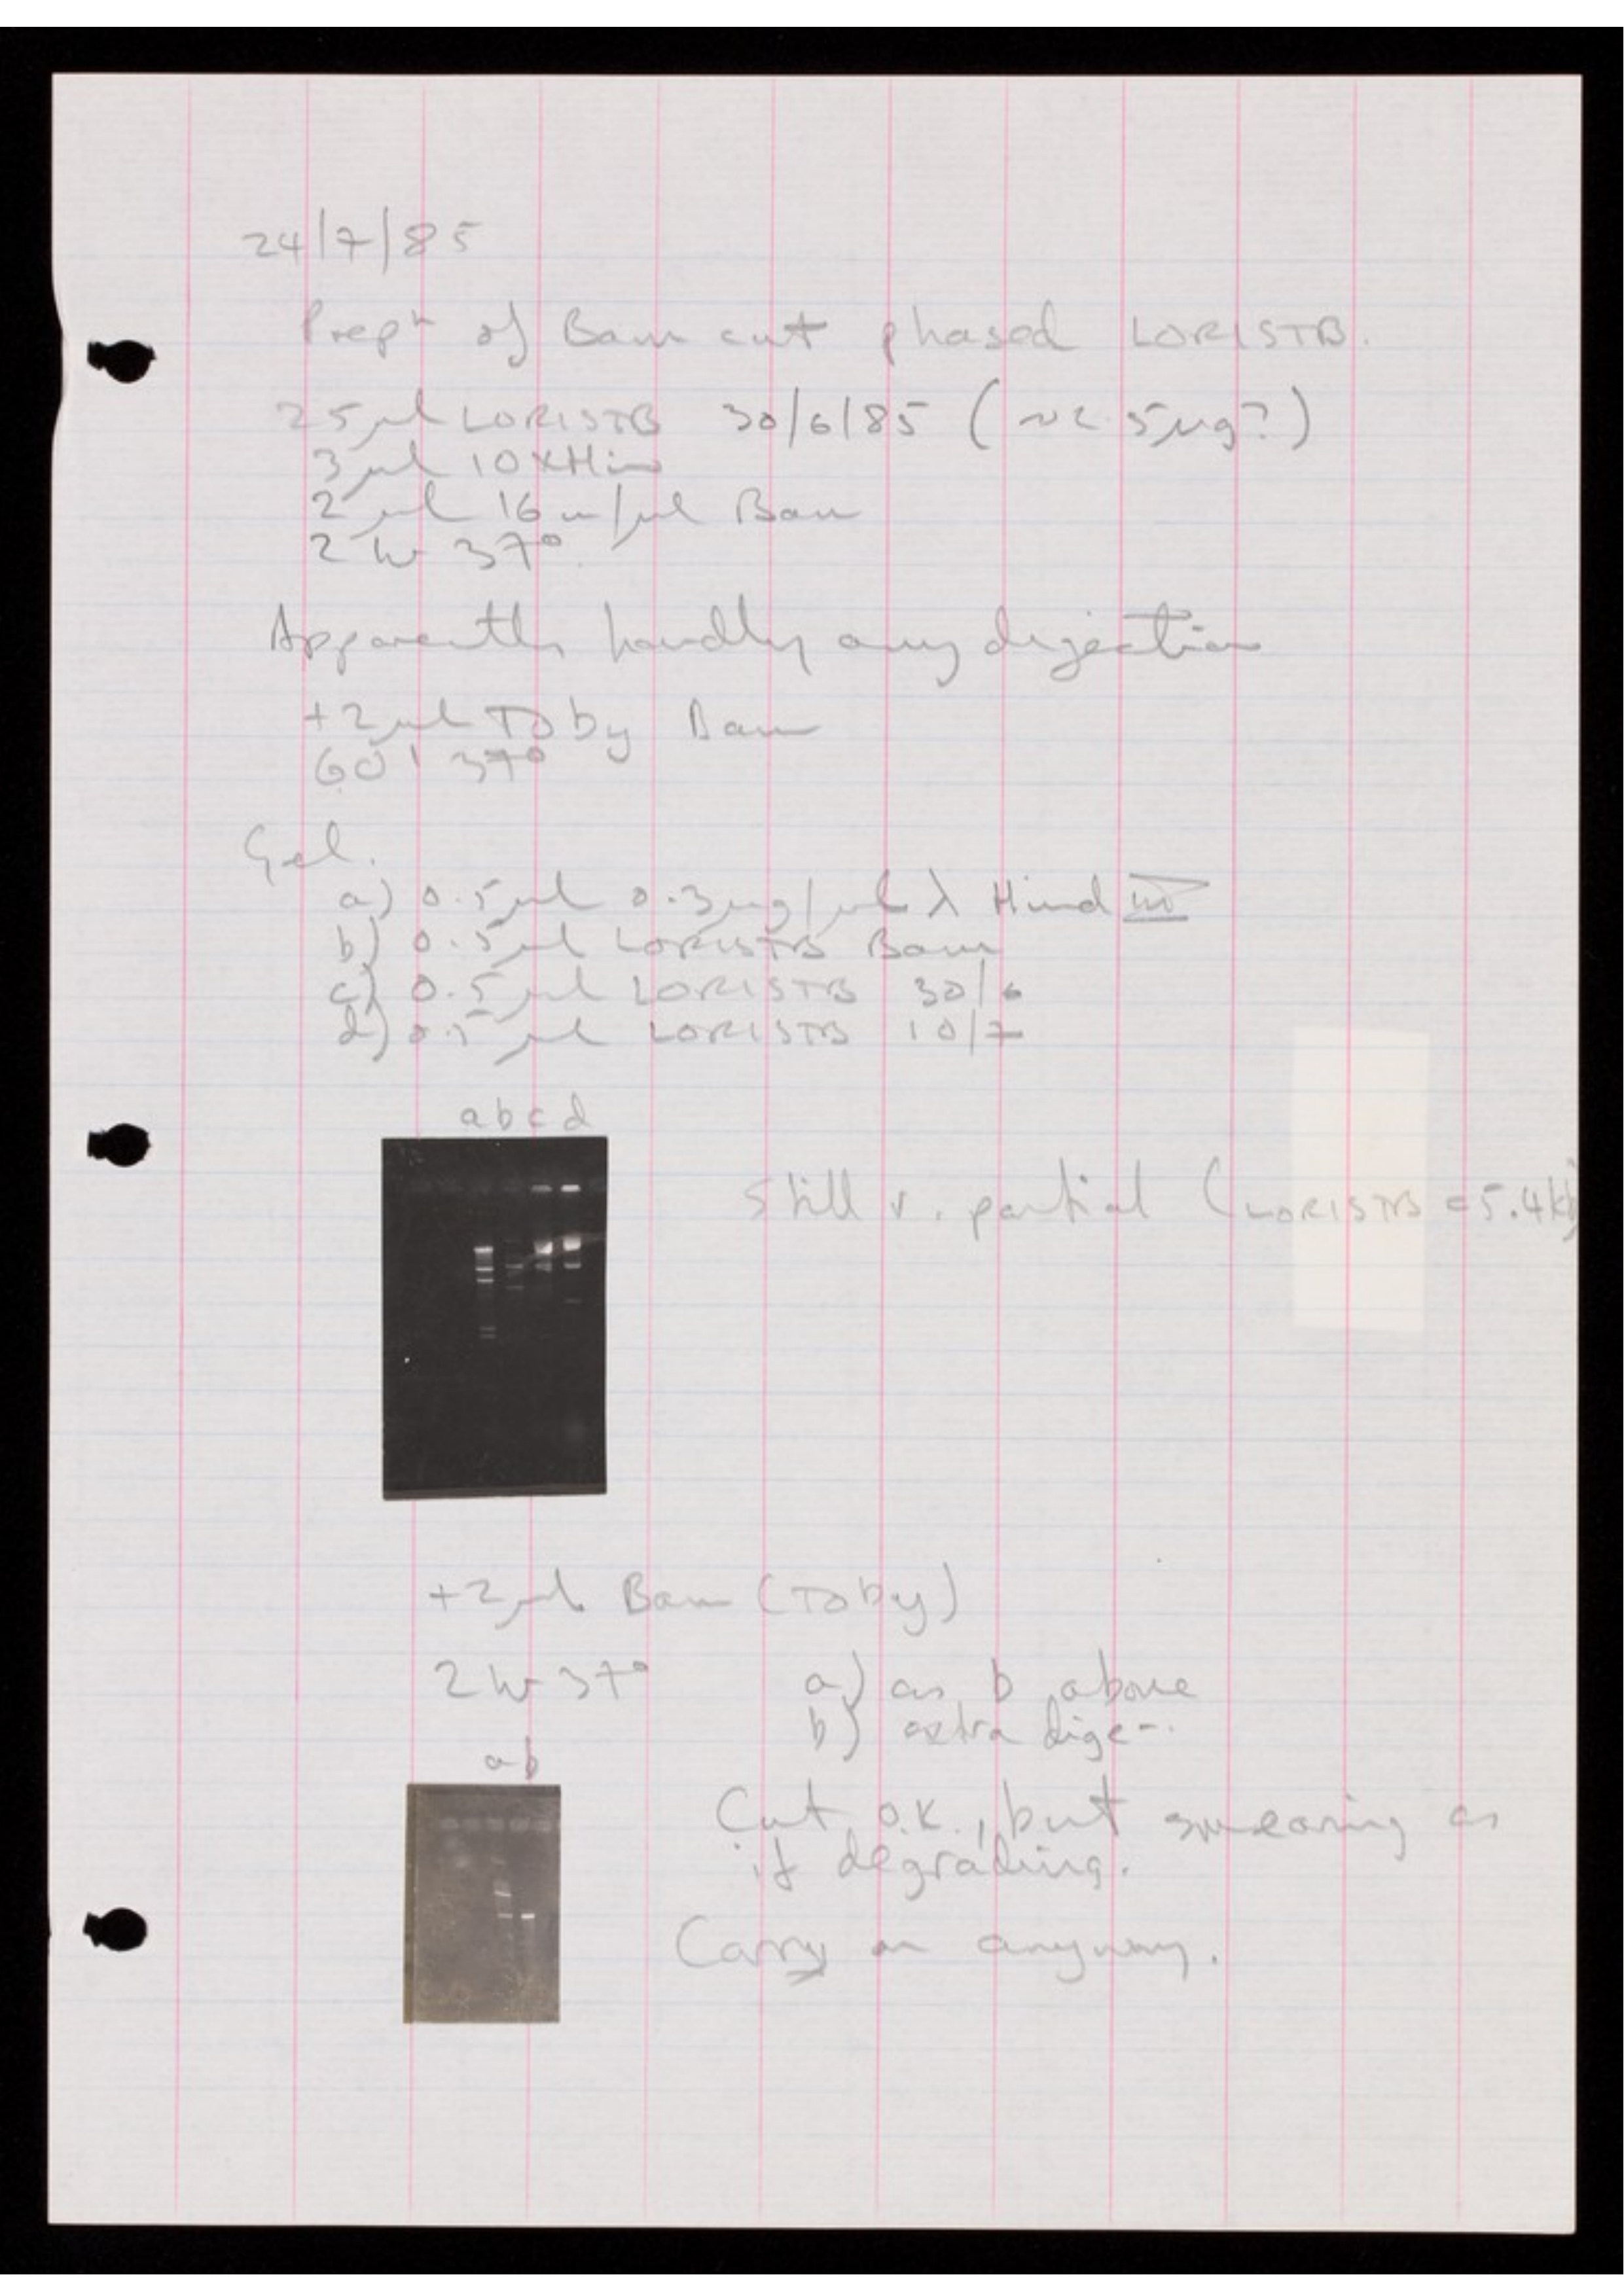 24/7/85
Prepⁿ of Bam cut phased LORISTB.
25µl LORISTB 30/6/85 (~2.5µg?)
3µl 10xHin
2µl 16u/µl Bam
2 hr 37°
Apparently hardly any digestion
+2µl Toby Bam
60' 37°
Gel.
a) 0.5µl 0.3µg/µl λ Hind III
b) 0.5µl LORISTB Bam
c) 0.5µl LORISTB 30/6
d) 0.5µl LORISTB 10/7
a b c d
Still v. partial (LORISTB = 5.4kb)
+2µl Bam (Toby)
2 hr 37°
a) as b above
b) extra dige-.
a b
Cut O.K., but smearing as
if degrading.
Carry on anyway.